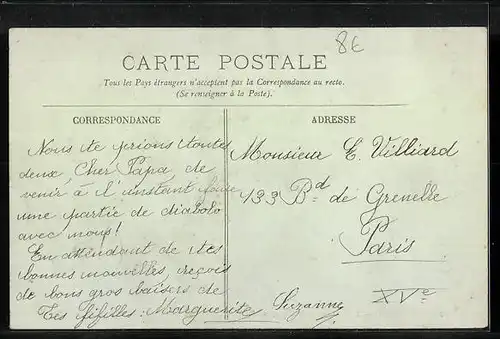 8€
CARTE POSTALE
Tous les Pays étrangers n'acceptent pas la Correspondance au recto.
(Se renseigner à la Poste).
CORRESPONDANCE
Nous te prions toutes
deux, Cher Papa, de
venir à l'instant faire
une partie de diabolo
avec nous!
En attendant de tes
bonnes nouvelles, reçois
de bons gros baisers de
Tes fifilles: Marguerite Suzanne
ADRESSE
Monsieur E. Villiard
133 Bd de Grenelle
Paris
XVe